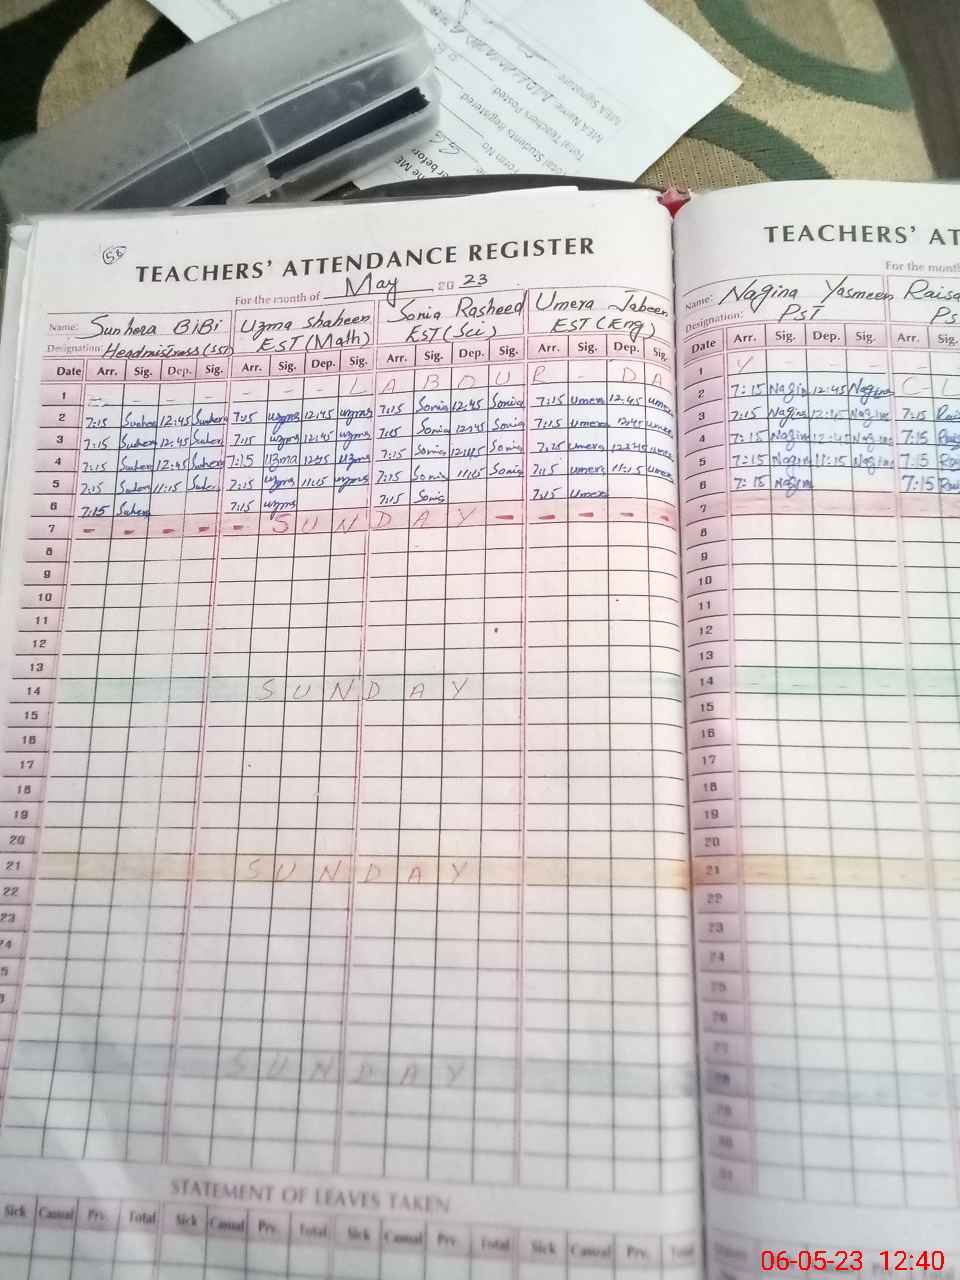 58
TEACHERS' ATTENDANCE REGISTER
For the month of May 2023
Name: Sunhera BiBi Uzma Shaheen Sonia Rasheed Umera Jabeen
Designation: Headmistress(SST) EST(Math) EST(Sci) EST(Eng)
Date Arr. Sig. Dep. Sig. Arr. Sig. Dep. Sig. Arr. Sig. Dep. Sig. Arr. Sig. Dep. Sig.
1 L A B O U R D A
2 7:15 12:45 7:15 uzma 12:45 uzma 7:15 Sonia 12:45 Sonia 7:15 umera 12:45 umera
3 7:15 12:45 7:15 uzma 12:45 uzma 7:15 Sonia 12:45 Sonia 7:15 umera 12:45 umera
4 7:15 12:45 7:15 uzma 12:45 uzma 7:15 Sonia 12:45 Sonia 7:15 umera 12:45 umera
5 7:15 11:15 7:15 uzma 11:15 uzma 7:15 Sonia 11:15 Sonia 7:15 umera 11:15 umera
6 7:15 7:15 uzma 7:15 Sonia 7:15 umera
7 S U N D A Y
8
9
10
11
12
13
14 S U N D A Y
15
16
17
18
19
20
21 S U N D A Y
22
23
24
S U N D A Y
STATEMENT OF LEAVES TAKEN
Sick Casual Prv. Total Sick Casual Prv. Total Sick Casual Prv. Total Sick Casual Prv. Total
TEACHERS' AT
For the month
Name: Nagina Yasmeen Raisa
Designation: PST Ps
Date Arr. Sig. Dep. Sig. Arr. Sig.
1 Y
2 7:15 Nagina 12:45 Nagina C - L
3 7:15 Nagina 12:45 Nagina 7:15
4 7:15 Nagina 12:45 Nagina 7:15
5 7:15 Nagina 11:15 Nagina 7:15
6 7:15 Nagina 7:15
7
8
9
10
11
12
13
14
15
16
17
18
19
20
21
22
23
24
25
26
27
28
29
30
31
MEA Signature:
MEA Name:
Total Teachers Posted:
Total Students Registered:
Form No
06-05-23 12:40